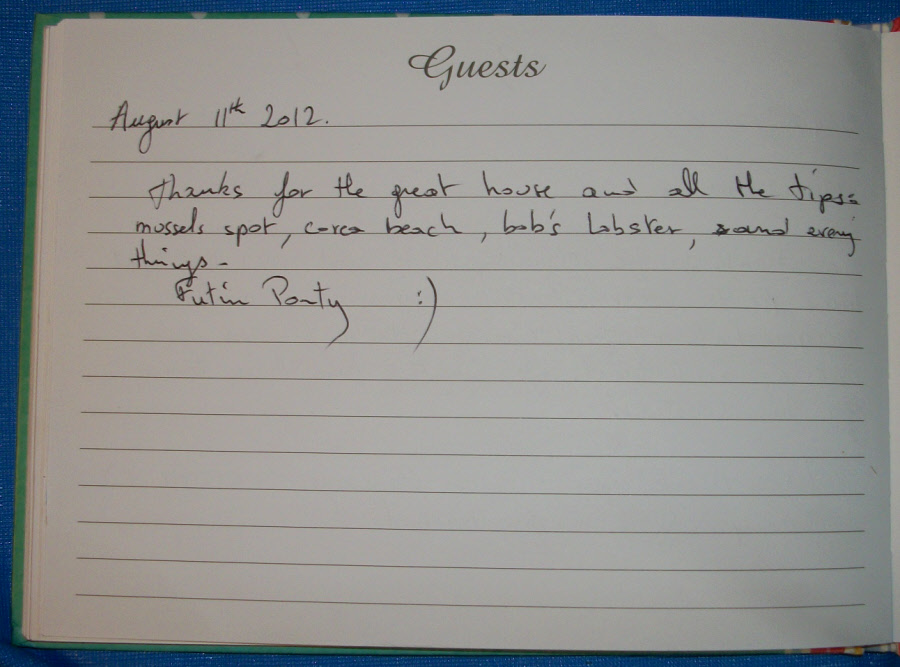 Guests
August 11th 2012.
Thanks for the great house and all the tips:
mussels spot, corea beach, bob's lobster, and every
things.
Party :)